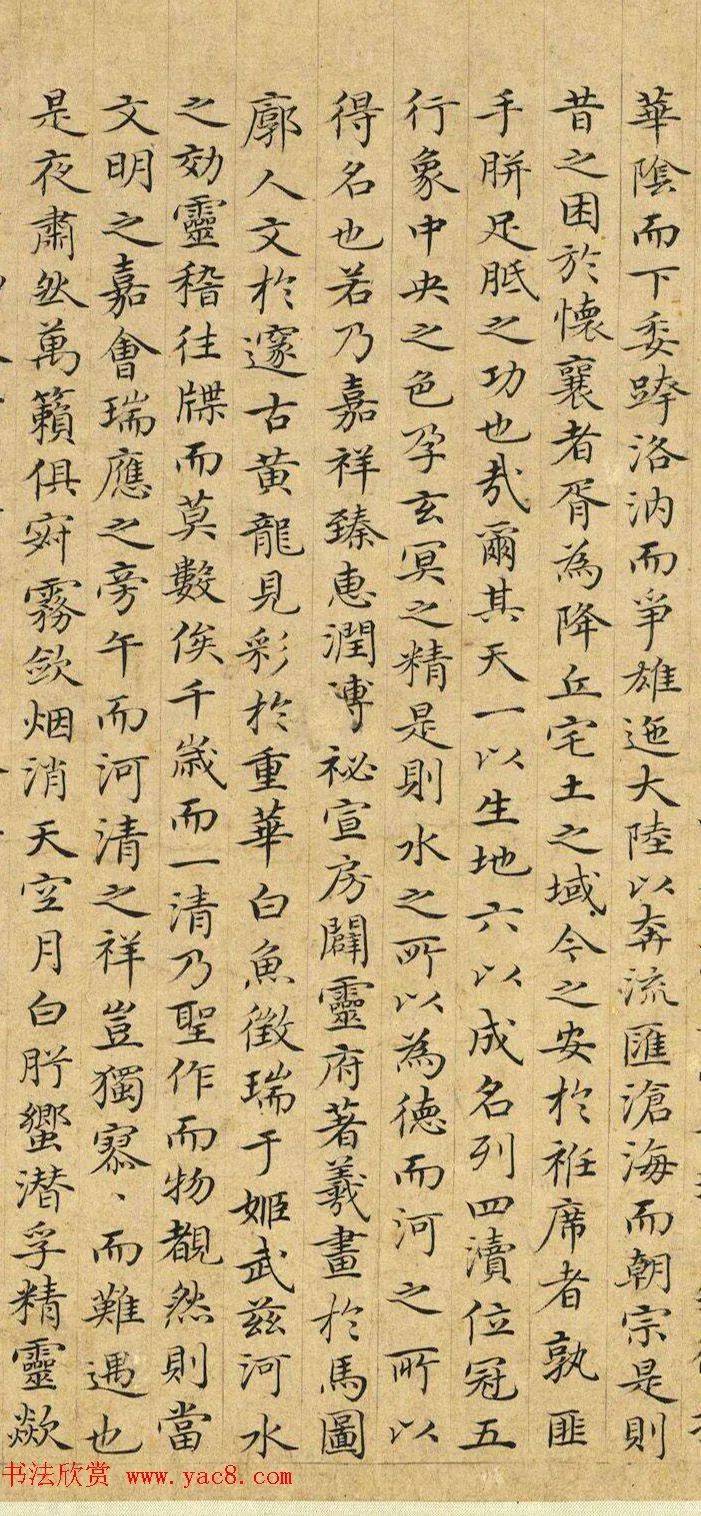 華陰而下委跨洛汭而爭雄迤大陸以奔流匯滄海而朝宗是則
昔之困於懷襄者胥為降丘宅土之域今之安於袵席者孰匪
手胼足胝之功也哉爾其天一以生地六以成名列四瀆位冠五
行象中央之色孕玄冥之精是則水之所以為德而河之所以
得名也若乃嘉祥臻惠潤溥祕宣房闢靈府著羲畫於馬圖
廓人文於邃古黃龍見彩於重華白魚徵瑞于姬武茲河水
之効靈稽往牒而莫數俟千歲而一清乃聖作而物覩然則當
文明之嘉會瑞應之旁午而河清之祥豈獨寥、而難遇也
是夜肅然萬籟俱寂霧斂烟消天空月白肸蠁潜孚精靈歘
书法欣赏 www.yac8.com